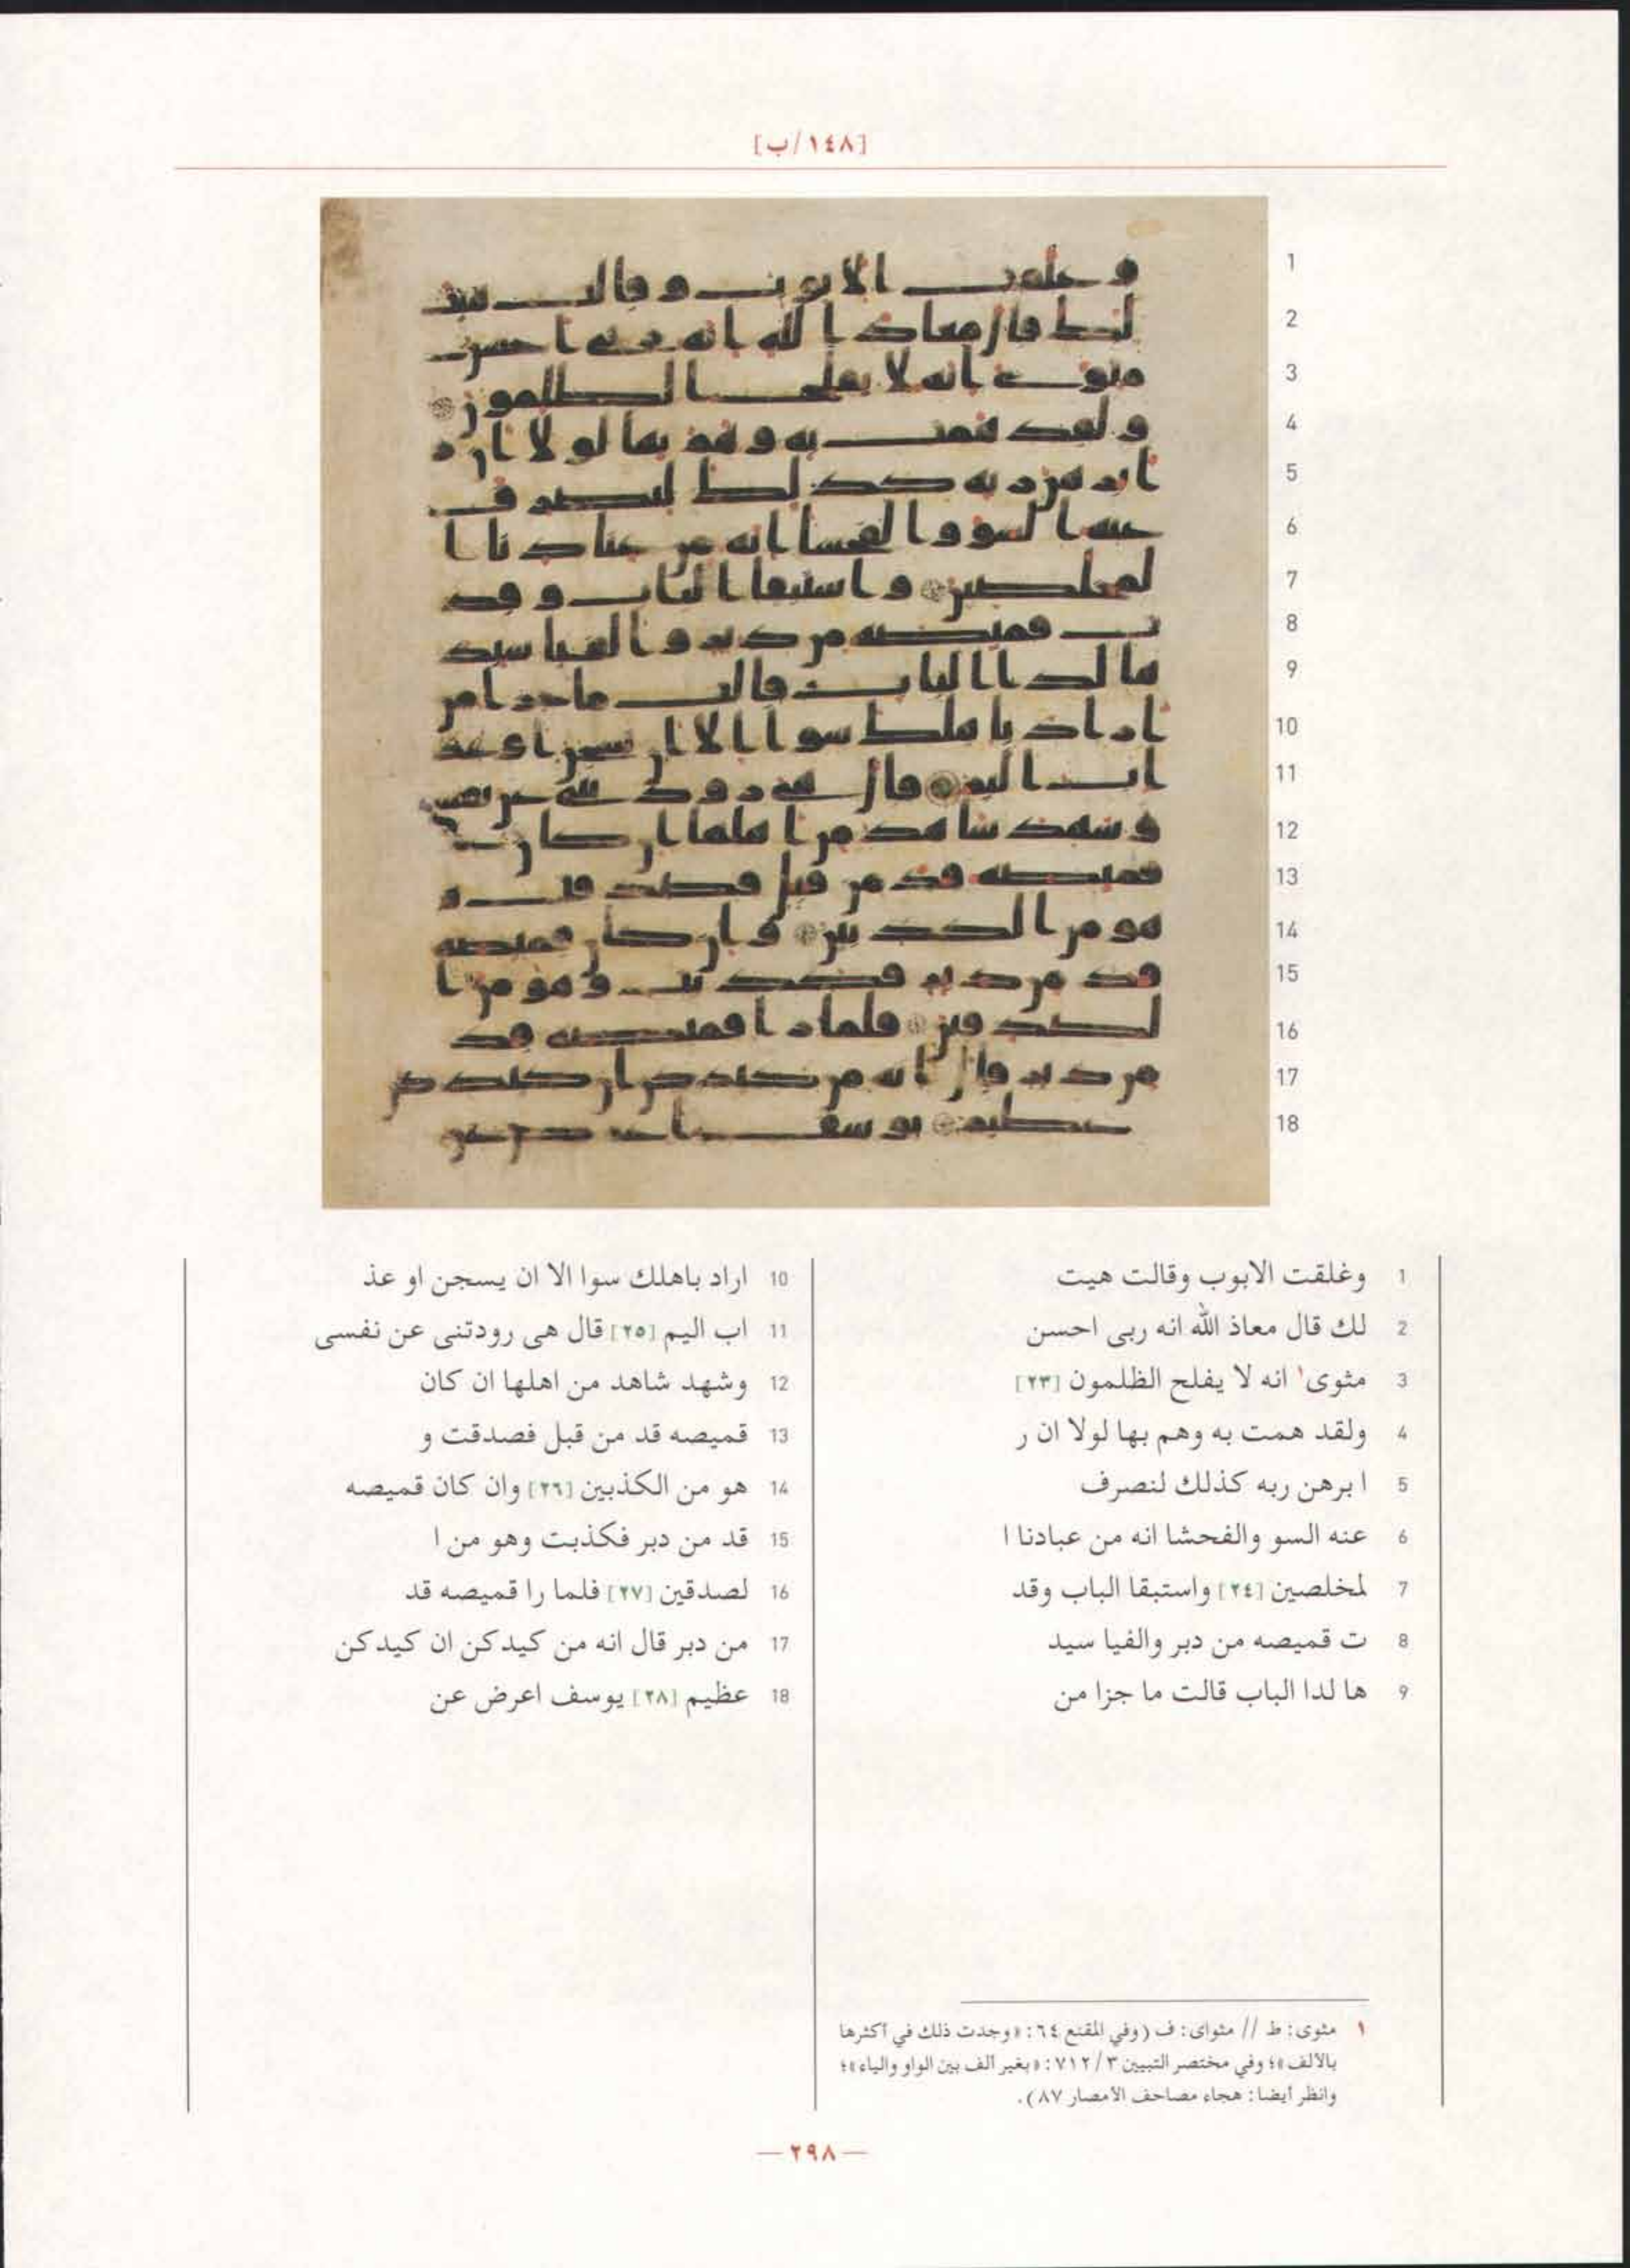 [١٤٨/ب]
1 وغلقت الابوب وقالت هيت
2 لك قال معاذ الله انه ربى احسن
3 مثوى١ انه لا يفلح الظلمون [٢٣]
4 ولقد همت به وهم بها لولا ان ر
5 ا برهن ربه كذلك لنصرف
6 عنه السو والفحشا انه من عبادنا ا
7 لمخلصين [٢٤] واستبقا الباب وقد
8 ت قميصه من دبر والفيا سيد
9 ها لدا الباب قالت ما جزا من
10 اراد باهلك سوا الا ان يسجن او عذ
11 اب اليم [٢٥] قال هى رودتنى عن نفسى
12 وشهد شاهد من اهلها ان كان
13 قميصه قد من قبل فصدقت و
14 هو من الكذبين [٢٦] وان كان قميصه
15 قد من دبر فكذبت وهو من ا
16 لصدقين [٢٧] فلما را قميصه قد
17 من دبر قال انه من كيدكن ان كيدكن
18 عظيم [٢٨] يوسف اعرض عن
١ مثوى: ط // مثواى: ف (وفي المقنع ٦٤: «وجدت ذلك في أكثرها
بالألف»؛ وفي مختصر التبيين ٣/ ٧١٢: «بغير ألف بين الواو والياء»؛
وانظر أيضا: هجاء مصاحف الأمصار ٨٧).
— ٢٩٨ —